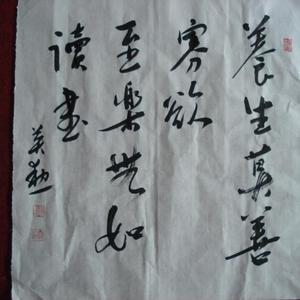 養生莫善
寡欲
至樂無如
讀書